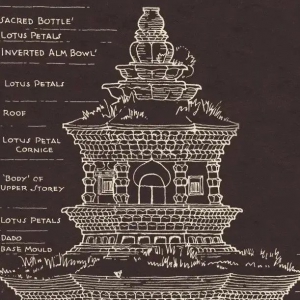 SACRED BOTTLE'
LOTUS PETALS
INVERTED ALM BOWL'
LOTUS PETALS
ROOF
LOTUS PETAL
CORNICE
'BODY' OF
UPPER STOREY
LOTUS PETALS
DADO
BASE MOULD